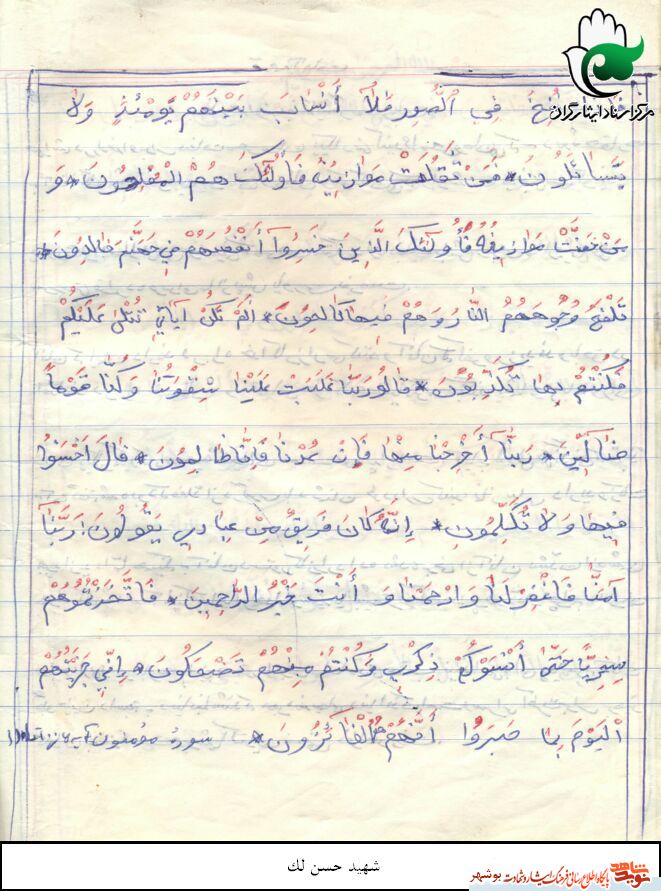 مرکز اسناد ایثارگران
نُفِخَ فِي ٱلصُّورِ فَلاٰ أَنْسٰابَ بَيْنَهُمْ يَوْمَئِذٍ وَلاٰ
يَتَسٰائَلُونَ * فَمَنْ ثَقُلَتْ مَوٰازِينُهُ فَأُولٰئِكَ هُمُ الْمُفْلِحُونَ * وَ
مَنْ خَفَّتْ مَوٰازِينُهُ فَأُولٰئِكَ الَّذِينَ خَسِرُوا أَنْفُسَهُمْ فِي جَهَنَّمَ خٰالِدُونَ *
تَلْفَحُ وُجُوهَهُمُ النّٰارُ وَهُمْ فِيهٰا كٰالِحُونَ * أَلَمْ تَكُنْ آيٰاتِي تُتْلىٰ عَلَيْكُمْ
فَكُنْتُمْ بِهٰا تُكَذِّبُونَ * قٰالُوا رَبَّنٰا غَلَبَتْ عَلَيْنٰا شِقْوَتُنٰا وَكُنّٰا قَوْماً
ضٰالِّينَ * رَبَّنٰا أَخْرِجْنٰا مِنْهٰا فَإِنْ عُدْنٰا فَإِنّٰا ظٰالِمُونَ * قٰالَ اخْسَئُوا
فِيهٰا وَلاٰ تُكَلِّمُونِ * إِنَّهُ كٰانَ فَرِيقٌ مِنْ عِبٰادِي يَقُولُونَ رَبَّنٰا
آمَنّٰا فَاغْفِرْ لَنٰا وَارْحَمْنٰا وَ أَنْتَ خَيْرُ الرّٰاحِمِينَ * فَاتَّخَذْتُمُوهُمْ
سِخْرِيًّا حَتّىٰ أَنْسَوْكُمْ ذِكْرِي وَكُنْتُمْ مِنْهُمْ تَضْحَكُونَ * إِنِّي جَزَيْتُهُمُ
الْيَوْمَ بِمٰا صَبَرُوا أَنَّهُمْ هُمُ الْفٰائِزُونَ * سورهٔ مومنون
شهید حسن لك
نوید شاهد پایگاه اطلاع رسانی فرهنگ ایثار و شهادت بوشهر